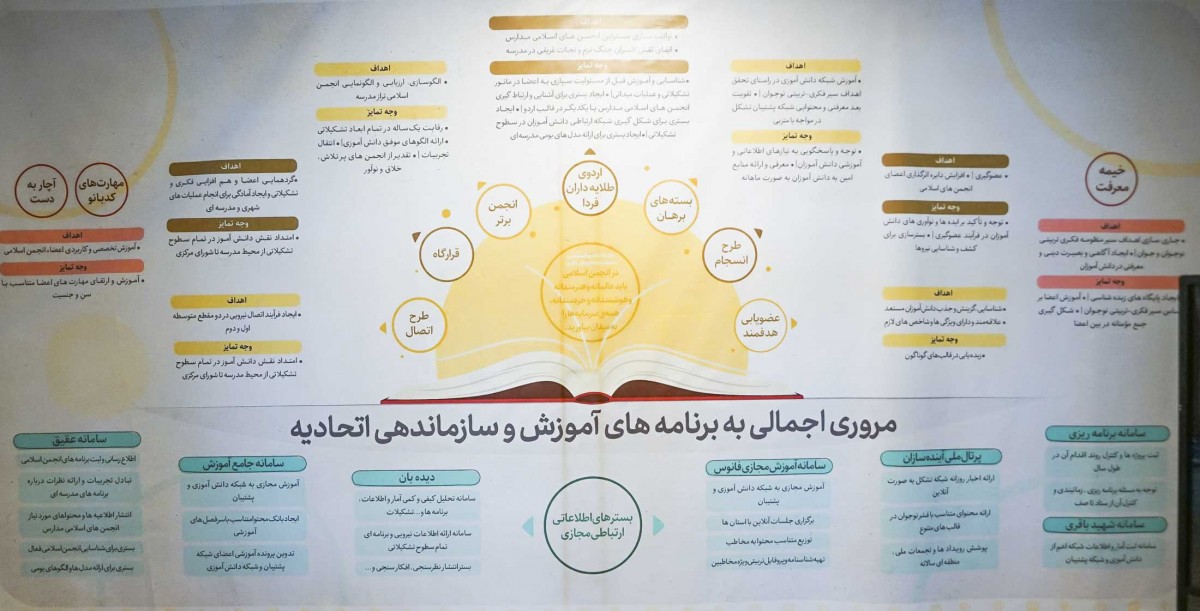 اهداف
توانمندسازی مسئولین انجمن های اسلامی مدارس
ایفای نقش افسران جنگ نرم و نجات غریق در مدرسه
وجه تمایز
• شناسایی و آموزش قبل از مسئولیت سپاری به اعضا در مانور
تشکیلاتی و عملیات میدانی | • ایجاد بستری برای آشنایی و ارتباط گیری
انجمن های اسلامی مدارس با یکدیگر در قالب اردو | • ایجاد
بستری برای شکل گیری شبکه ارتباطی دانش آموزان در سطوح
تشکیلاتی | • ایجاد بستری برای ارائه مدل های بومی مدرسه ای
اهداف
• آموزش شبکه دانش آموزی در راستای تحقق
اهداف سیر فکری-تربیتی نوجوان | • تقویت
بعد معرفتی و محتوایی شبکه پشتیبان تشکل
در مواجه با متربی
وجه تمایز
• توجه و پاسخگویی به نیازهای اطلاعاتی و
آموزشی دانش آموزان | • معرفی و ارائه منابع
امین به دانش آموزان به صورت ماهانه
اهداف
• الگوسازی، ارزیابی و الگونمایی انجمن
اسلامی تراز مدرسه
وجه تمایز
• رقابت یک ساله در تمام ابعاد تشکیلاتی
• ارائه الگوهای موفق دانش آموزی | • انتقال
تجربیات | • تقدیر از انجمن های پر تلاش،
خلاق و نوآور
خیمه
معرفت
اهداف
• جاری سازی اهداف سیر منظومه فکری تربیتی
نوجوان و جوان | • ایجاد آگاهی و بصیرت دینی و
معرفتی در دانش آموزان
وجه تمایز
ایجاد پایگاه های زبده شناسی | • آموزش اعضا بر
اساس سیر فکری-تربیتی نوجوان | • شکل گیری
جمع مؤمنانه در بین اعضا
اهداف
• عضوگیری | • افزایش دایره اثرگذاری اعضای
انجمن های اسلامی
وجه تمایز
• توجه و تأکید بر ایده ها و نوآوری های دانش
آموزان در فرآیند عضوگیری | • بسترسازی برای
کشف و شناسایی نیروها
اهداف
• شناسایی، گزینش و جذب دانش آموزان مستعد
، علاقه مند و دارای ویژگی ها و شاخص های لازم
وجه تمایز
• زبده یابی در قالب های گوناگون
اردوی
طلایه داران
فردا
بسته های
برهان
طرح
انسجام
عضویابی
هدفمند
انجمن
برتر
قرارگاه
طرح
اتصال
در انجمن اسلامی
باید عالمانه و هنرمندانه
و هوشمندانه و خردمندانه،
همه ی سرمایه ها را
به میدان بیاورید.
اهداف
• گردهمایی اعضا و هم افزایی فکری و
تشکیلاتی و ایجاد آمادگی برای انجام عملیات های
شهری و مدرسه ای
وجه تمایز
• امتداد نقش دانش آموز در تمام سطوح
تشکیلاتی از محیط مدرسه تا شورای مرکزی
اهداف
• ایجاد فرآیند اتصال نیرویی در دو مقطع متوسطه
اول و دوم
وجه تمایز
• امتداد نقش دانش آموز در تمام سطوح
تشکیلاتی از محیط مدرسه تا شورای مرکزی
مهارت های
کدبانو
آچار به
دست
اهداف
• آموزش تخصصی و کاربردی اعضاء انجمن اسلامی
وجه تمایز
• آموزش و ارتقای مهارت های اعضا متناسب با
سن و جنسیت
مروری اجمالی به برنامه های آموزش و سازماندهی اتحادیه
سامانه برنامه ریزی
ثبت پروژه ها و کنترل روند اقدام آن در
طول سال
توجه به مسئله برنامه ریزی ، زمانبندی و
کنترل آن از ستاد تا صف
سامانه شهید باقری
سامانه ثبت آمار و اطلاعات شبکه اعم از
دانش آموزی و شبکه پشتیبان
پرتال ملی آینده سازان
ارائه اخبار روزانه شبکه تشکل به صورت
آنلاین
ارائه محتوای متناسب با قشر نوجوان در
قالب های متنوع
پوشش رویداد ها و تجمعات ملی ،
منطقه ای سالانه
سامانه آموزش مجازی فانوس
آموزش مجازی به شبکه دانش آموزی و
پشتیبان
برگزاری جلسات آنلاین با استان ها
توزیع متناسب محتوا به مخاطب
تهیه شناسنامه و پروفایل تربیتی ویژه مخاطبین
بسترهای اطلاعاتی
ارتباطی مجازی
دیده بان
سامانه تحلیل کیفی و کمی آمار و اطلاعات،
برنامه ها و...تشکیلات
سامانه ارائه اطلاعات نیرویی و برنامه ای
تمام سطوح تشکیلاتی
بستر انتشار نظرسنجی، افکار سنجی و...
سامانه جامع آموزش
آموزش مجازی به شبکه دانش آموزی و
پشتیبان
ایجاد بانک محتوا متناسب با سرفصل های
آموزشی
تدوین پرونده آموزشی اعضای شبکه
پشتیبان و شبکه دانش آموزی
سامانه عقیق
اطلاع رسانی و ثبت برنامه های انجمن اسلامی
تبادل تجربیات و ارائه نظرات درباره
برنامه های مدرسه ای
انتشار اطلاعیه ها و محتواهای مورد نیاز
انجمن های اسلامی مدارس
بستری برای شناسایی انجمن اسلامی فعال
بستری برای ارائه مدل ها و الگوهای بومی